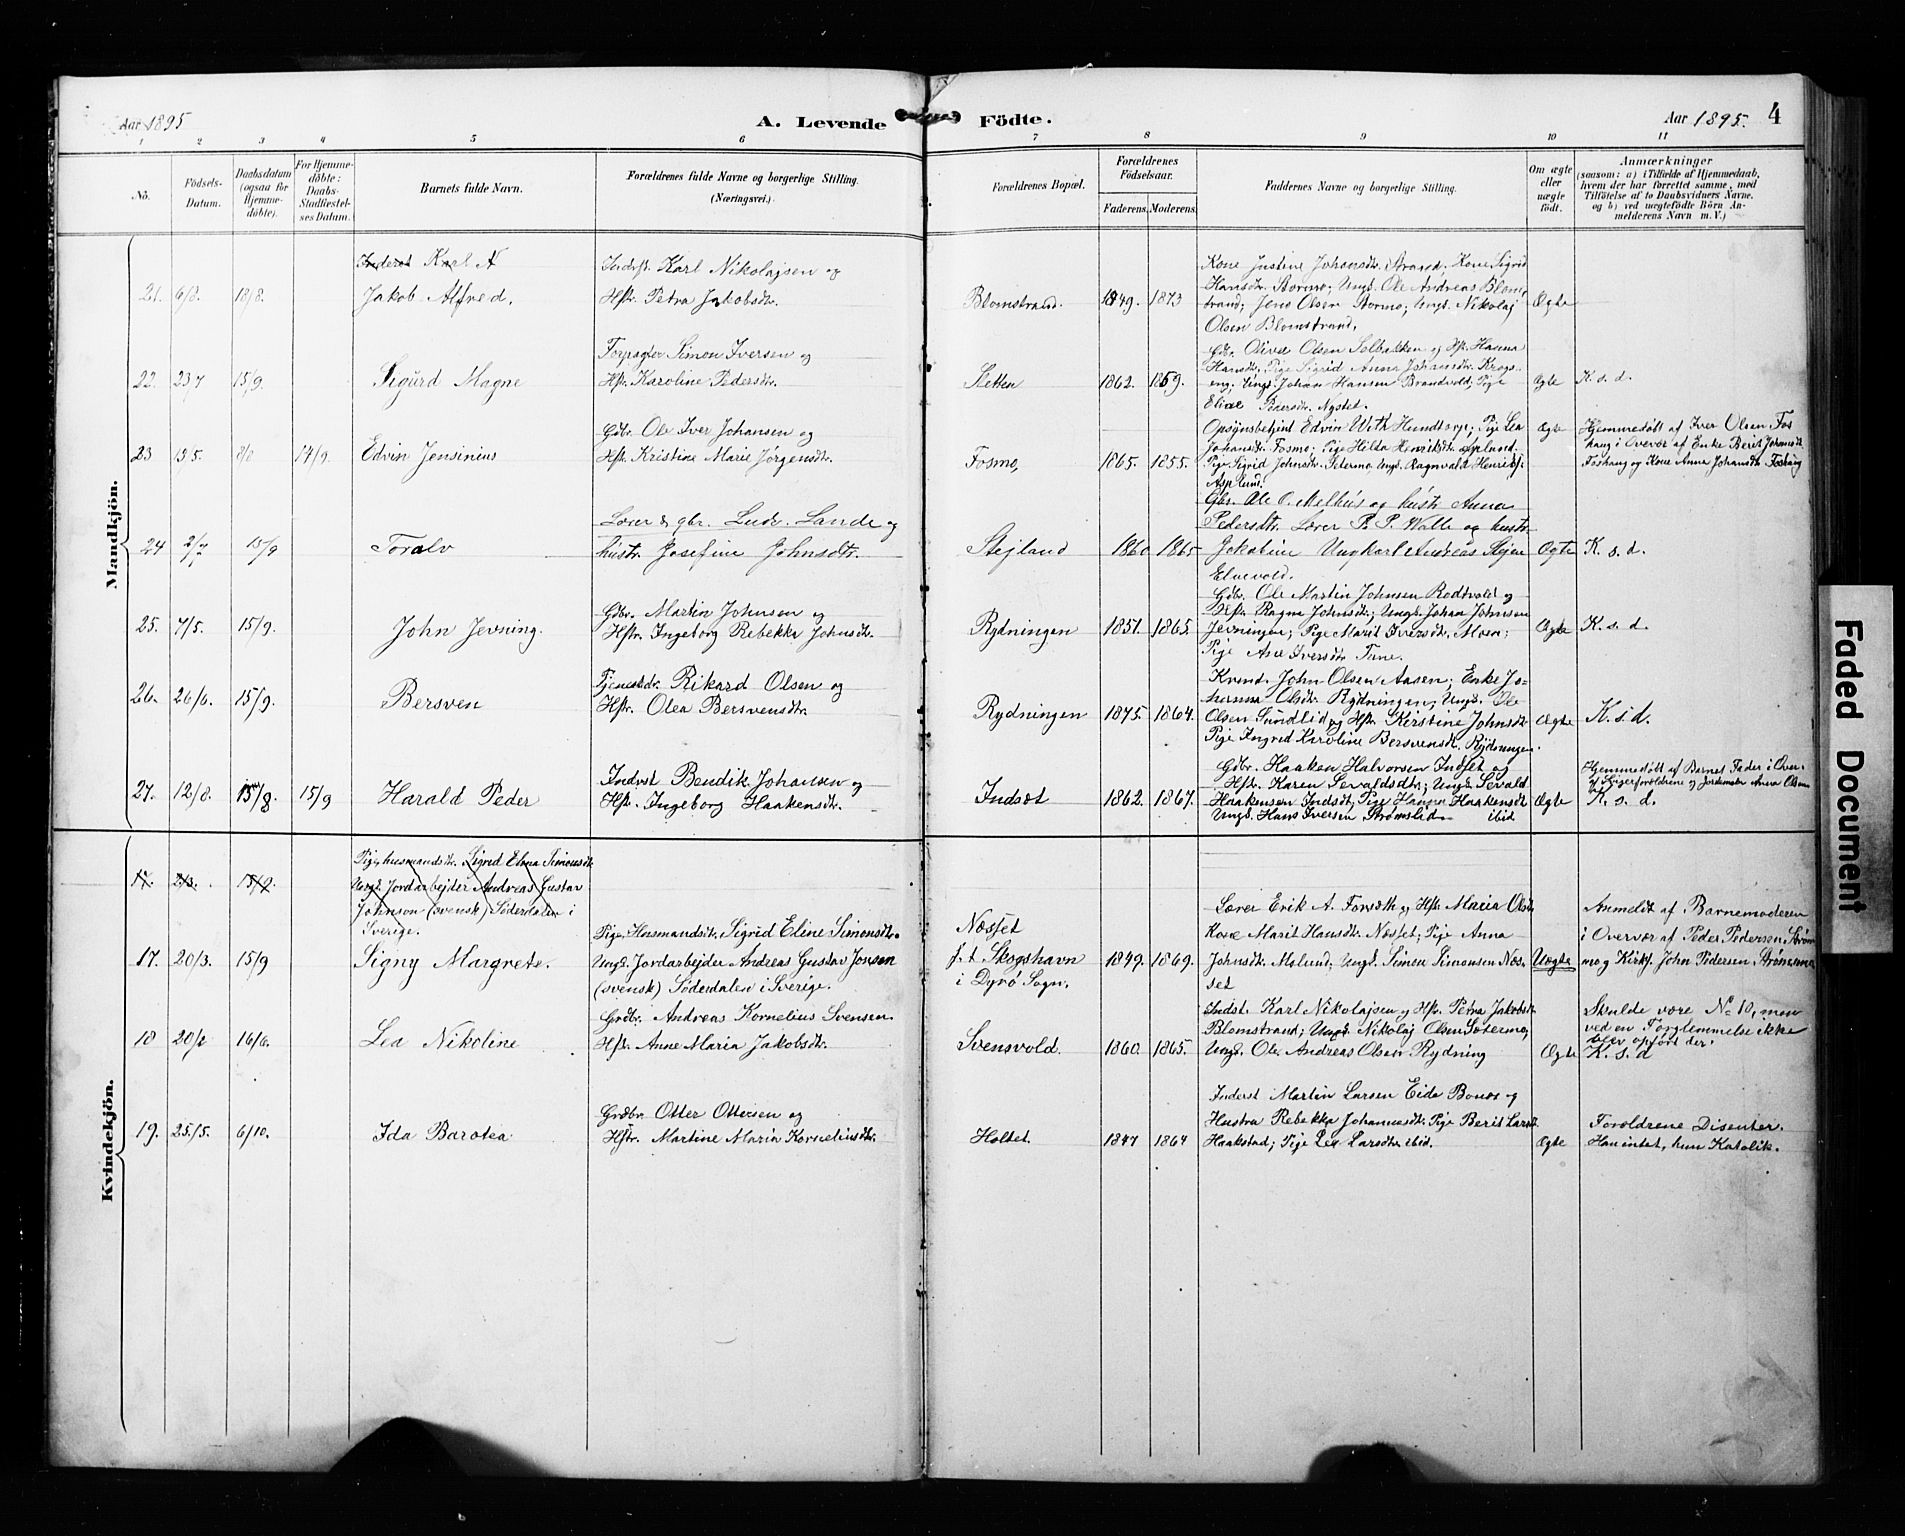 Aar 1895
A. Levende Födte.
Aar 1895.
4
1 2 3 4 5 6 7 8 9 10 11
No.
Födsels-Datum.
Daabsdatum (ogsaa for Hjemmedöbte).
For Hjemmedöbte: Daabs-Stadfæstelses Datum.
Barnets fulde Navn.
Forældrenes fulde Navne og borgerlige Stilling.
(Næringsvei.)
Forældrenes Bopæl.
Forældrenes Födselsaar.
Faderens. Moderens.
Faddernes Navne og borgerlige Stilling.
Om ægte eller uægte födt.
Anmærkninger
(saasom: a) i Tilfælde af Hjemmedaab, hvem der har forrettet samme, med Tilföielse af to Daabsvidners Navne, og b) ved uægtefödte Börn Anmelderens Navn m. V.)
Mandkjön.
Inderst Karl N
21. 6/8. 18/8. Jakob Alfred.
Inderst. Karl Nikolajsen og
Hstr. Petra Jakobsdtr.
Blomstrand. 1849. 1873
Kone Justine Johansdtr. Strand; Kone Sigrid
Hansdtr. Stormo; Ungk. Ole Andreas Blom-
strand; Jens Olsen Stormo; Ungk. Nikolaj
Olsen Blomstrand.
Ægte
22. 23/7 15/9. Sigurd Magne
Forpagter Simon Iversen og
Hstr. Karoline Pedersdtr.
Sletten 1862. 1859.
Gdbr. Oliva Olsen Solbakken og Hstr. Hanna
Hansdtr; Pige Sigrid Anna Johansdtr. Krogs-
eng; Ungk. Johan Hansen Brandvold; Pige
Elise Pedersdtr. Nystet.
Ægte K. s. d.
23 13/5. 8/8 14/9. Edvin Jensinius
Gdbr. Ole Iver Johansen og
Hstr. Kristine Marie Jörgensdtr.
Fosmo, 1865. 1855.
Opsynsbetjent Edvin With Hundtorp; Pige Lea
Johansdt. Fosmo; Pige Hilda Henriksdt. Asplund.
Pige Sigrid Johnsdtr. Setermo, Ungk. Ragnvald Henriks.
Asplund.
Ægte
Hjemmedøbt af Iver Olsen Fos
hang i Overvær af Enke Berit Johansdt
Foshaug og Kone Anna Johansdt Foshaug
24 2/7 15/9 Toralv
Lærer & gbr. Ludv. Lande og
hustr. Josefine Johnsdtr.
Stejland 1860 1865
Gbr. Ole O. Melhus og hustr. Anna
Pedersdtr. Lærer P. P. Wolle og hustr.
Jakobine Ungkarl Andreas Stejen
Elvevold.
Ægte K. s. d.
25. 7/5. 15/9. John Jevning.
Gdbr. Martin Johnsen og
Hstr. Ingeborg Rebekka Johnsdtr.
Rydningen 1851. 1865.
Gdbr. Ole Martin Johnsen Rodtvold og
Hstr. Ragna Johnsdtr; Ungk. Johan Johnsen
Jevningen; Pige Marit Iversdtr. Moen;
Pige Ane Iversdtr. Tune.
Ægte K. s. d.
26. 26/6. 15/9. Bersven
Tjenestdr. Rikard Olsen og
Hstr. Olea Bersvensdtr.
Rydningen 1875. 1864.
Kvend. John Olsen Aasen; Enke Jo-
hanna Olsdtr. Rydningen; Ungk. Ole
Olsen Sundlid og Hstr. Kirstine Johnsdtr
Pige Ingrid Karoline Bersvensdt. Rydningen.
Ægte K. s. d.
27. 12/8. 15/8 15/9 Harald Peder
Inderst Bendik Johansen og
Hstr. Ingeborg Haakensdtr.
Indset 1862. 1867.
Gdbr. Haaken Halvorsen Indset og
Hstr. Karen Sevaldsdtr; Ungk. Sevald
Haakensen Indset; Pige Hanna Haakensdt
Ungk. Hans Iversen Strömslid ibid
Ægte
Hjemmedøbt af Barnets Fader i Over-
K. s. d.
Kvindekjön.
17. 2/3. 15/9.
Pige, husmandsdtr. Sigrid Elina Simonsdt
Ungk. Jordarbejder Andreas Gustav
Johnson (svensk) Söderdalen i
Sverige.
17. 20/3. 15/9 Signy Margrete.
Pige, Husmandsdt. Sigrid Eline Simonsdtr.
Ungk. Jordarbejder Andreas Gustav Jonson
(svensk) Söderdalen i Sverige.
Næsset
f. t. Skogshavn
i Dyrö Sogn.
1849. 1869.
Lærer Erik A. Forseth og Hstr. Maria Olsdt.
Kone Marit Hansdt. Næsset; Pige Anna
Johnsdt. Moland; Ungk. Simon Simonsen Næs-
set
Uægte
Anmeldt af Barnemoderen
i Overvær af Peder Pedersen Ström
mo og Kirks. John Pedersen Strömsmo
18 20/2 16/6. Lea Nikoline
Grdbr. Andreas Kornelius Svensen
Hstr. Anne Maria Jakobsdtr.
Svensvold. 1860. 1865.
Indst. Karl Nikolajsen og Hstr. Petra Jakobsdt
Blomstrand; Ungk. Nikolaj Olsen Setermo;
Ungk. Ole Andreas Olsen Rydning
Ægte
Skulde være No 10, men
ved en Forglemmelse ikke
blev opført der.
K. s. d
19. 25/5. 6/10. Ida Barotea
Grdbr. Otter Ottersen og
Hstr. Martine Maria Korneliusdtr.
Holtet. 1847 1864
Inderst Martin Larsen Eide Bonæs og
Hustru Rebekka Johannesdt. Pige Berit Larsdt
Haakstad; Pige Lea Larsdtr. ibid.
Ægte
Foroldrene Disenter.
Han intet, hun Katolik.
Faded Document